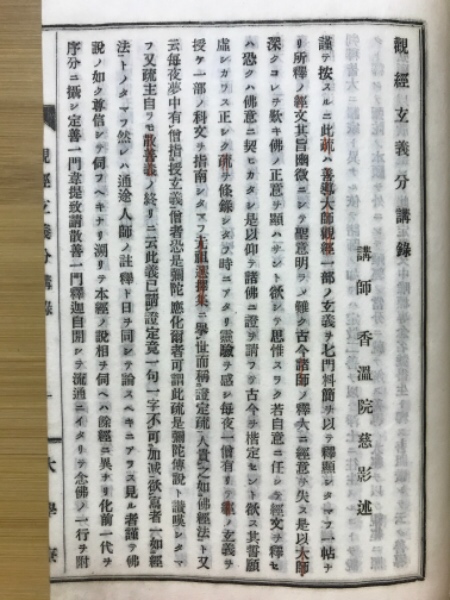 觀經玄義分講錄
講師香溫院慈影述
謹テ按スルニ此疏ハ善導大師觀經一部ノ玄義ヲ七門料簡ヲ以テ釋顯シタマフ一帖ナ
リ所釋ノ經文其旨幽微ニシテ聖意明ラメ難ク古今諸師ノ釋大ニ經意ヲ失ス是以大師
深クコレヲ歎キ佛ノ正意ヲ顯ハサント欲シテ思惟スラク若自意ニ任シテ經文ヲ釋セ
ハ恐クハ佛意ニ契ヒカタシ是以仰テ諸佛ニ證ヲ請フテ古今ヲ楷定セント欲ス其誓願
虛シカラス正シク疏ヲ條錄シタマフ時ニアタリ靈驗ヲ感シ每夜一僧有リテ經ノ玄義ヲ
授ケ一部ノ科文ヲ指南シタマフ元祖選擇集ニ擧世而稱證定疏人貴之如佛經法ト又
云每夜夢中有僧指授玄義僧者恐是彌陀應化爾者可謂此疏是彌陀傳說ト讚嘆シタマ
フ又疏主自ラモ散善義ノ終リニ云此義已請證定竟一句一字不可加減欲寫者一如經
法トノタマフ然レハ通途人師ノ註釋ト日ヲ同シテ論スヘキニアラス見ル者謹テ佛
說ノ如ク尊信シテ伺フヘキナリ溯リテ本經ノ說相ヲ伺ヘハ餘經ニ異ナリ化前一代ヲ
序分ニ攝シ定善一門韋提致請散善一門釋迦自開シテ流通ニイタリテ念佛ノ一行ヲ附
觀經玄義分講錄
一
大學寮